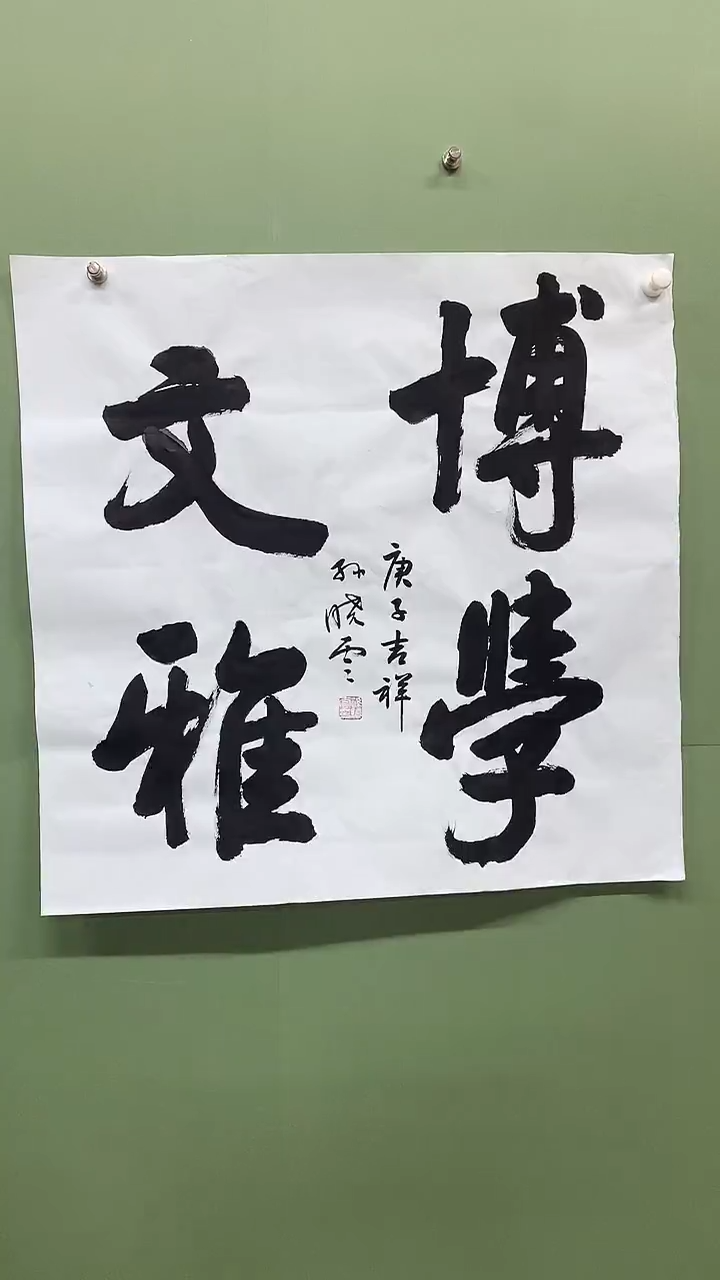 博學
文雅
庚子吉祥
孙晓雲